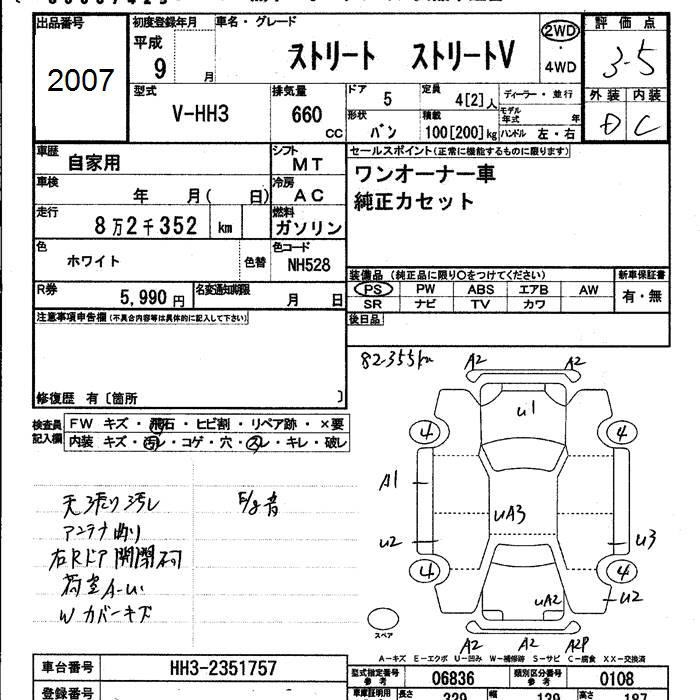 出品番号 初度登録年月 車名・グレード 評価点
2007 平成 9 月 ストリート ストリートV 2WD・4WD 3.5
型式 排気量 ドア 5 定員 4[2]人 ディーラー・並行 外装 内装
V-HH3 660 CC 形状 バン 積載 100[200]kg モデル年式 年 ハンドル 左・右 D C
車歴 自家用 シフト MT セールスポイント(正常に機能するものに限ります)
車検 年 月( 日) 冷房 AC ワンオーナー車
走行 8万2千352 km 燃料 ガソリン 純正カセット
色 ホワイト 色替 色コード NH528
装備品(純正品に限り○をつけてください) 新車保証書
R券 5,990円 名変通知期限 月 日 PS PW ABS エアB AW 有・無
SR ナビ TV カワ
注意事項申告欄(不具合内容等は具体的に記入して下さい) 後日品
修復歴 有〔箇所 〕
82355km
検査員記入欄 FW キズ・飛石・ヒビ割・リペア跡・×要
内装 キズ・汚レ・コゲ・穴・スレ・キレ・破レ
A2 A2
U1
4 4
A1
UA3
U2 U3
4 4
UA2 U2
A2 A2 A2P
天張り汚レ
アンテナ曲り
右Rドア開閉
荷室A-U
Wカバーキズ
スペア
A-キズ E-エクボ U-凹み W-補修跡 S-サビ C-腐食 XX-交換済
車台番号 HH3-2351757 型式指定番号 参考 06836 類別区分番号 参考 0108
登録番号 車庫証明用 長さ 329 幅 139 高さ 187